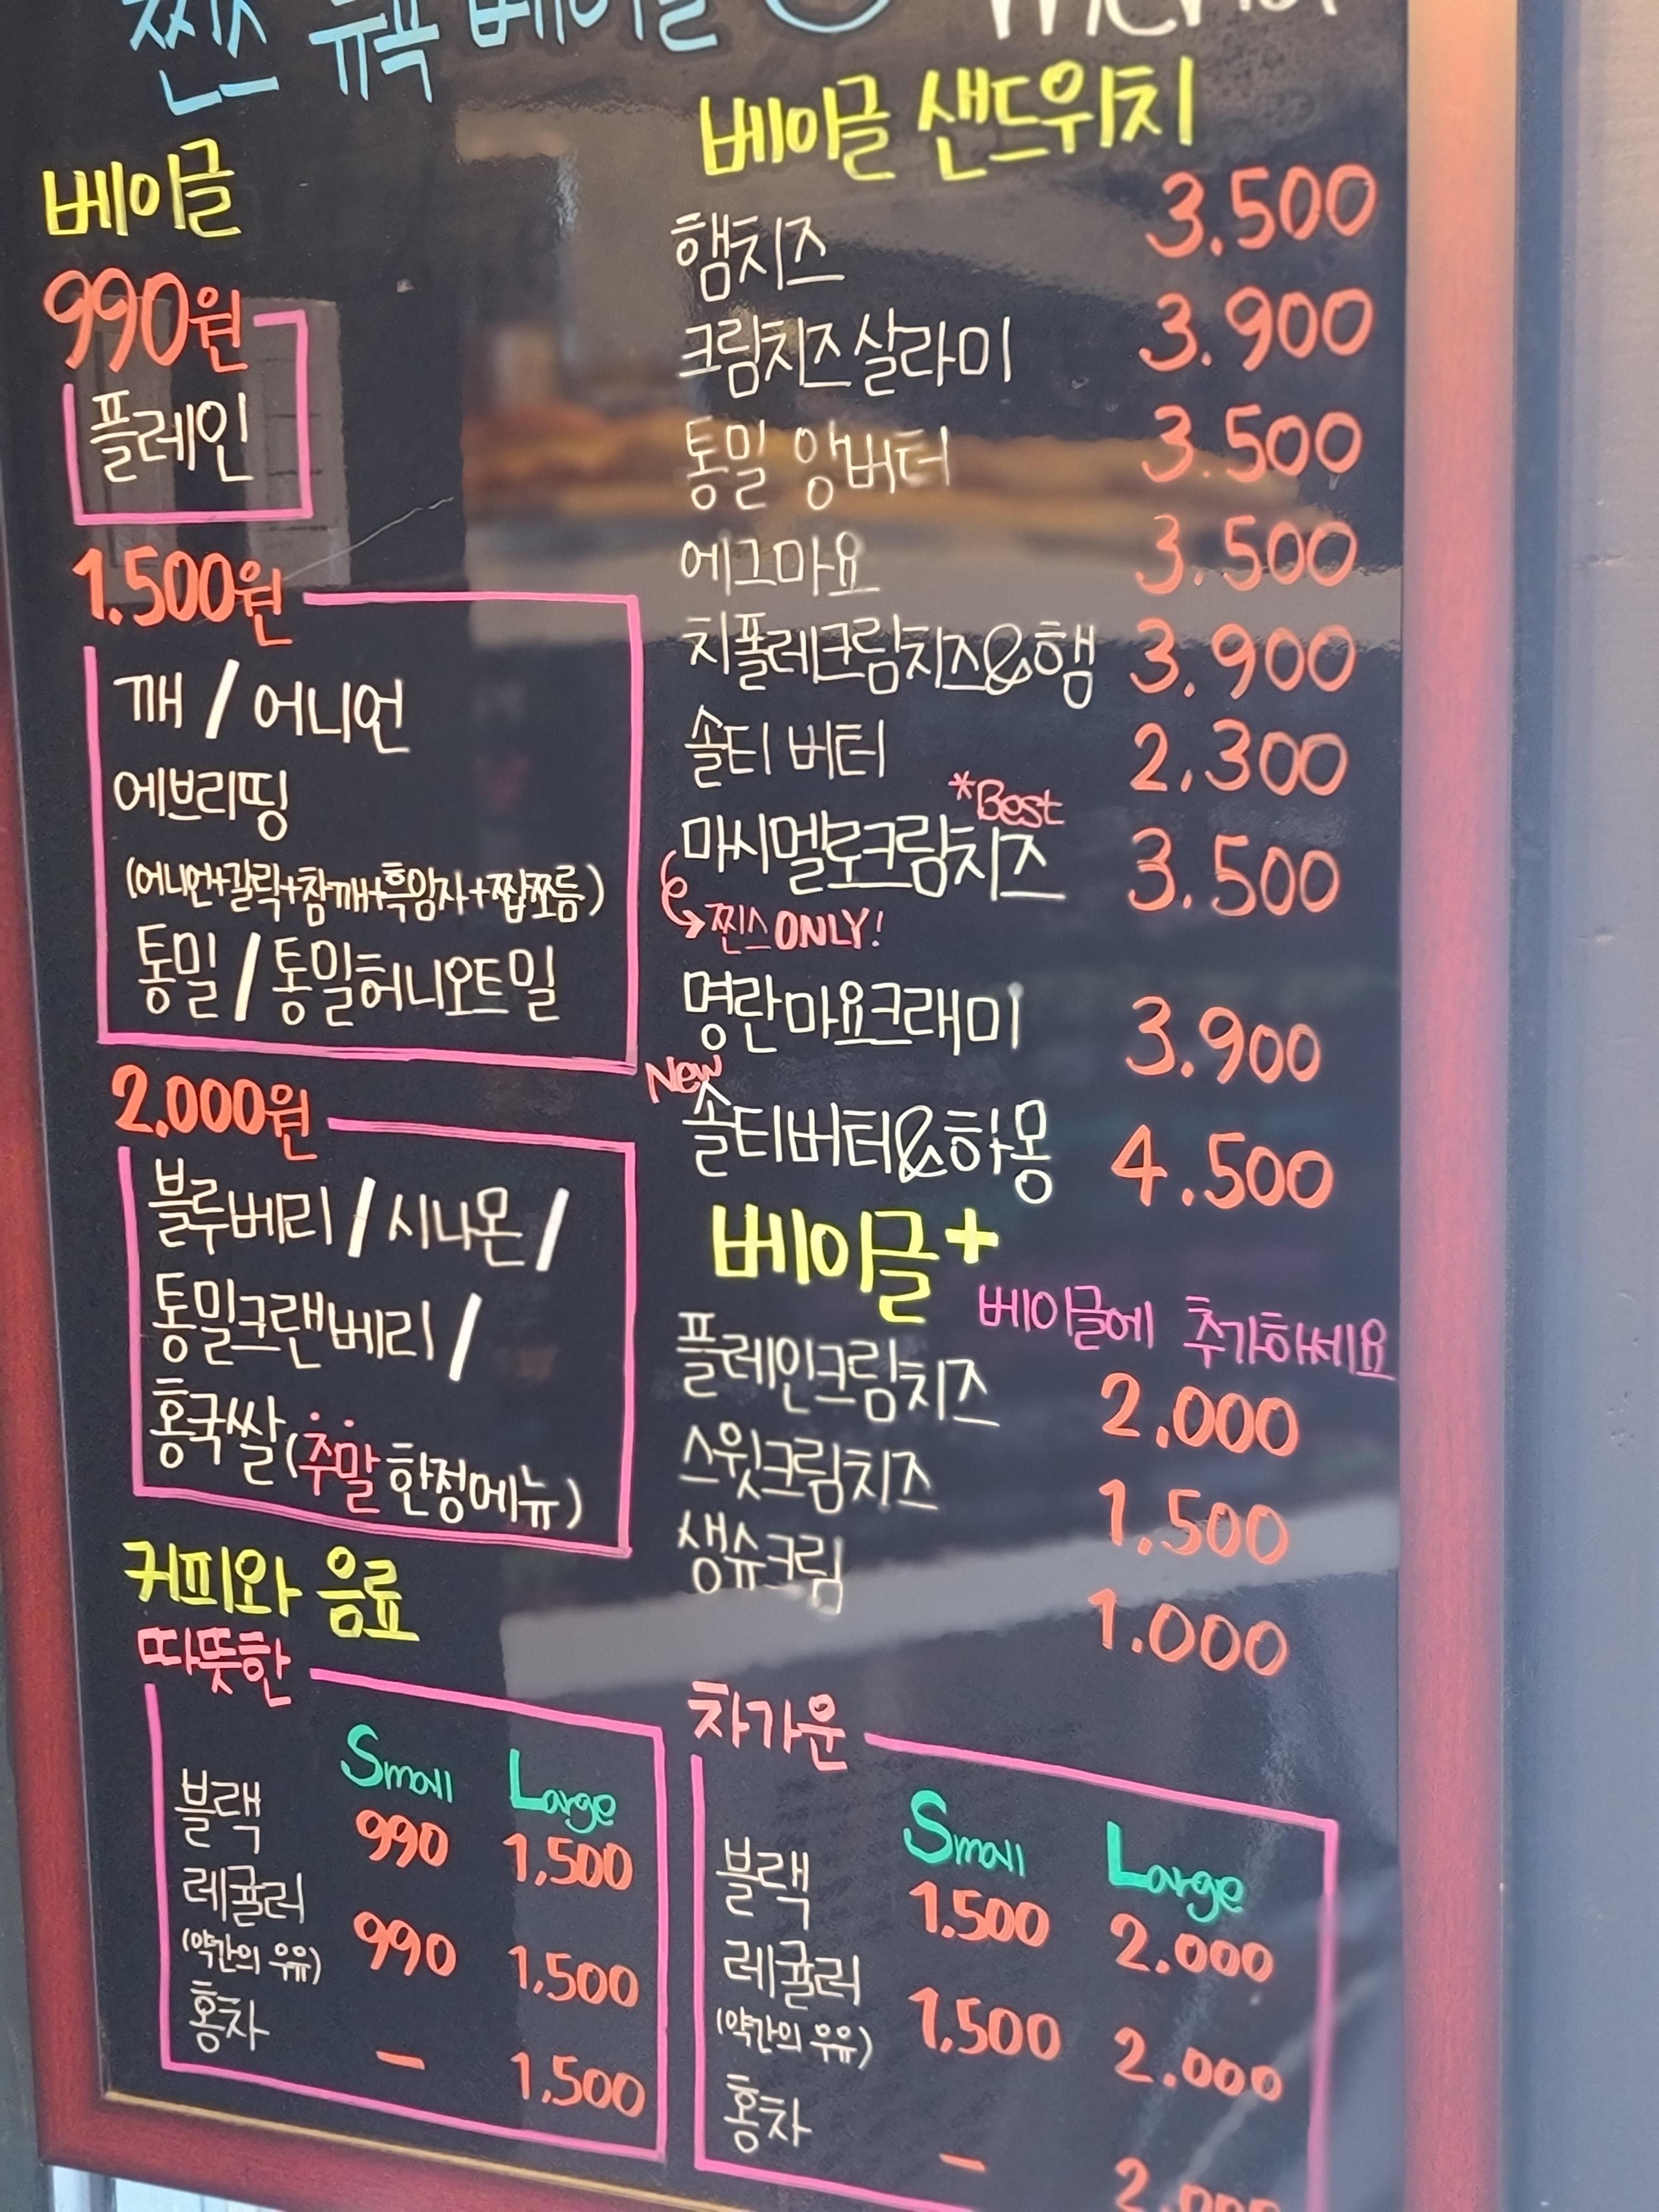 찐스 뉴욕 베이글 menu
베이글
990원
플레인
1.500원
깨 / 어니언
에브리띵
(어니언+갈릭+참깨+흑임자+짭쪼름)
통밀 / 통밀허니오트밀
2.000원
블루베리 / 시나몬 /
통밀크랜베리 /
홍국쌀 (주말 한정메뉴)
베이글 샌드위치
햄치즈 3.500
크림치즈살라미 3.900
통밀 앙버터 3.500
에그마요 3.500
치폴레크림치즈&햄 3.900
솔티 버터 2.300
*Best
마시멜로크림치즈 3.500
찐스 ONLY!
명란마요크래미 3.900
New
솔티버터&하몽 4.500
베이글+
베이글에 추가하세요
플레인크림치즈 2.000
스윗크림치즈 1.500
생슈크림 1.000
커피와 음료
따뜻한
Small Large
블랙 990 1,500
레귤러 990 1,500
(약간의 우유)
홍차 - 1,500
차가운
Small Large
블랙 1.500 2.000
레귤러 1,500 2.000
(약간의 우유)
홍차 - 2.000